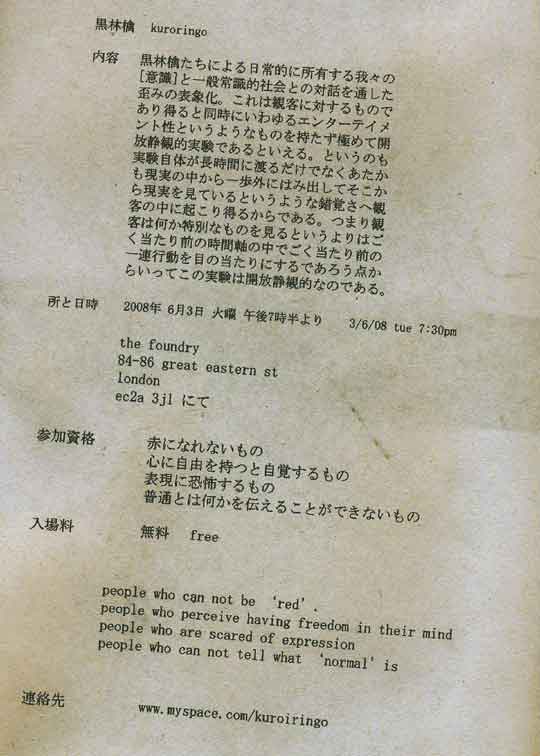 黒林檎 kuroringo
内容 黒林檎たちによる日常的に所有する我々の
[意識]と一般常識的社会との対話を通した
歪みの表象化。これは観客に対するもので
あり得ると同時にいわゆるエンターテイメ
ント性というようなものを持たず極めて開
放静観的実験であるといえる。というのも
実験自体が長時間に渡るだけでなくあたか
も現実の中から一歩外にはみ出してそこか
ら現実を見ているというような錯覚さへ観
客の中に起こり得るからである。つまり観
客は何か特別なものを見るというよりはご
く当たり前の時間軸の中でごく当たり前の
一連行動を目の当たりにするであろう点か
らいってこの実験は開放静観的なのである。
所と日時 2008年 6月3日 火曜 午後7時半より 3/6/08 tue 7:30pm
the foundry
84-86 great eastern st
london
ec2a 3jl にて
参加資格 赤になれないもの
心に自由を持つと自覚するもの
表現に恐怖するもの
普通とは何かを伝えることができないもの
入場料 無料 free
people who can not be 'red'.
people who perceive having freedom in their mind
people who are scared of expression
people who can not tell what 'normal' is
連絡先 www.myspace.com/kuroiringo